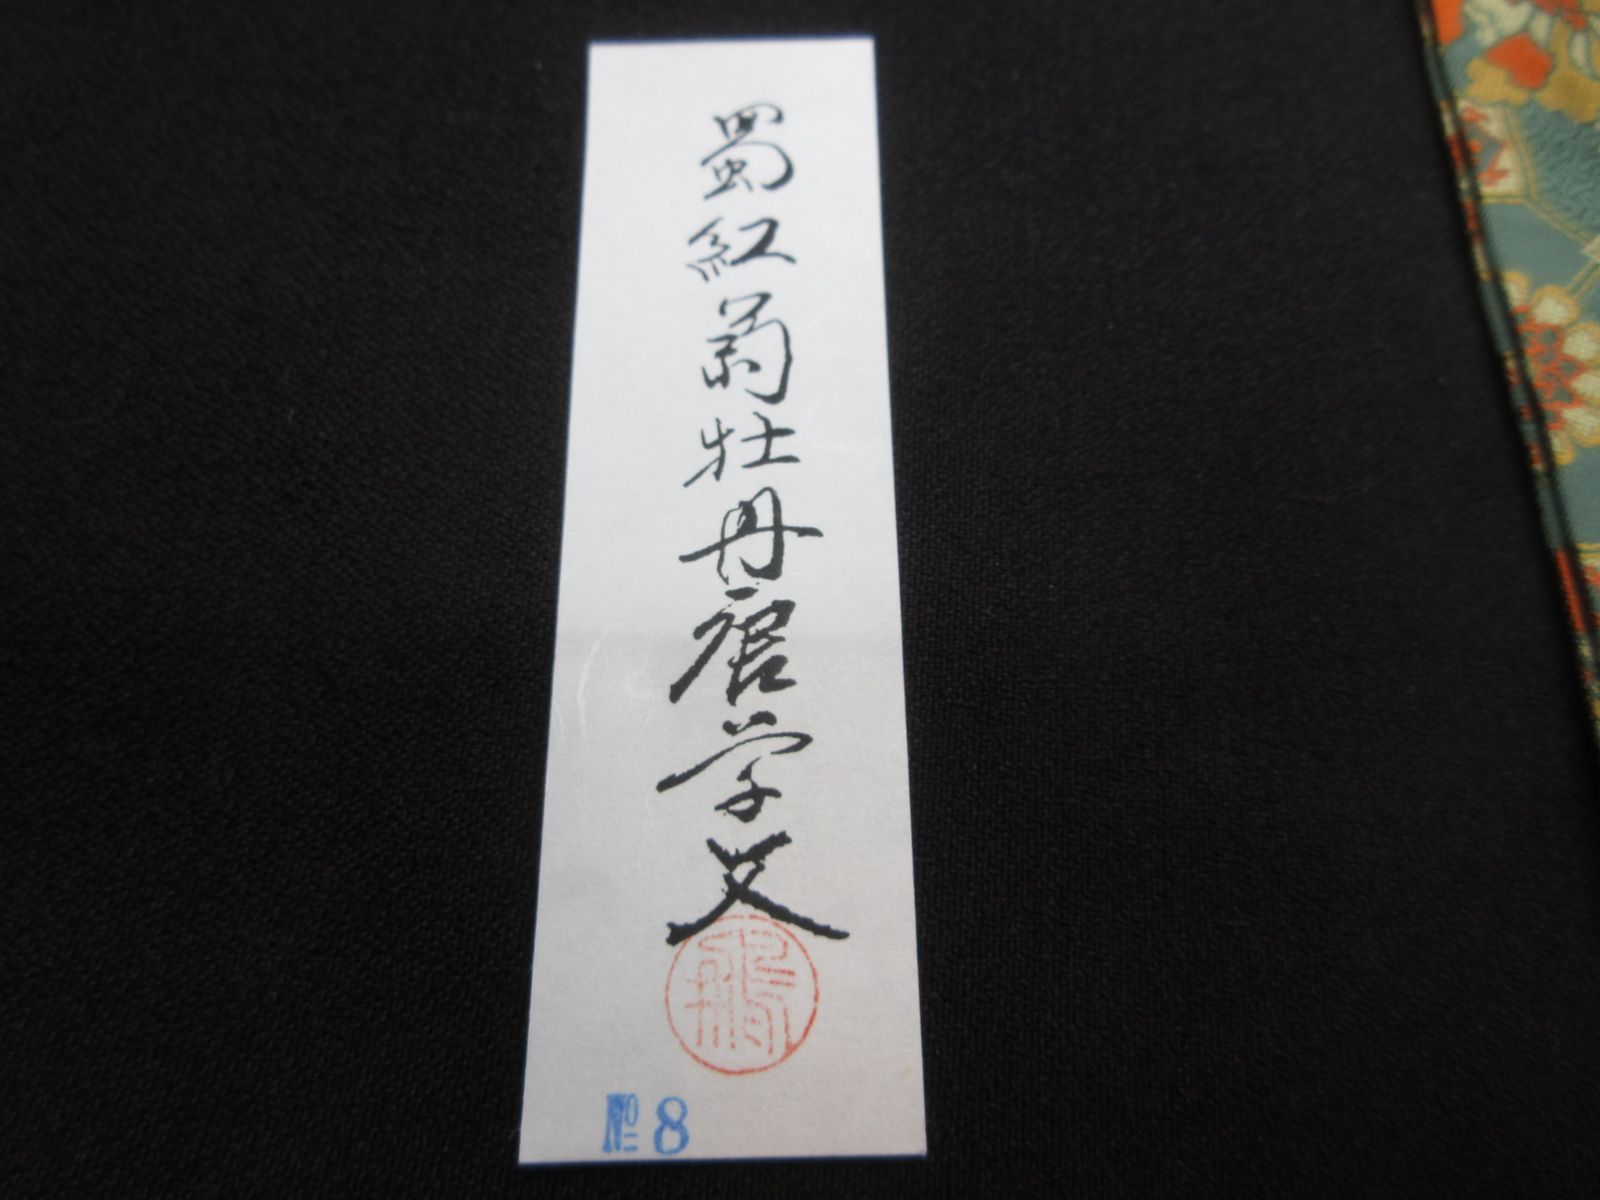 蜀紅菊牡丹唐草文
№8